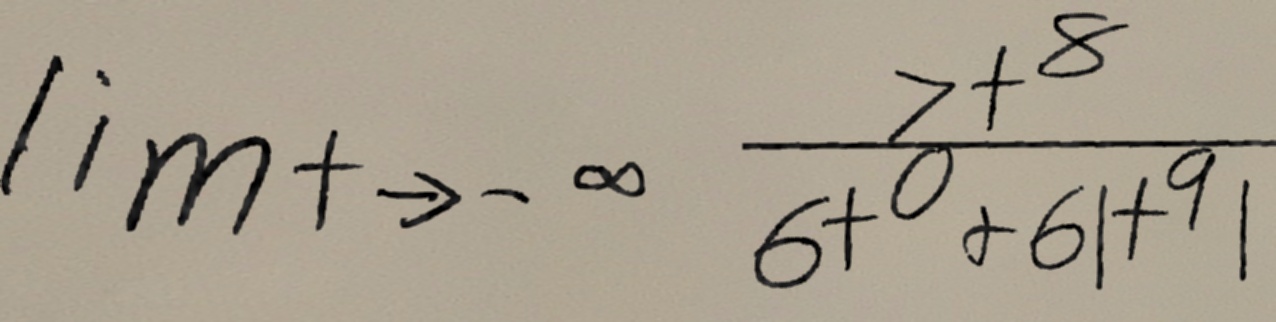 lim t → - ∞ \frac{7t^8}{6t^0 + 6|t^9|}